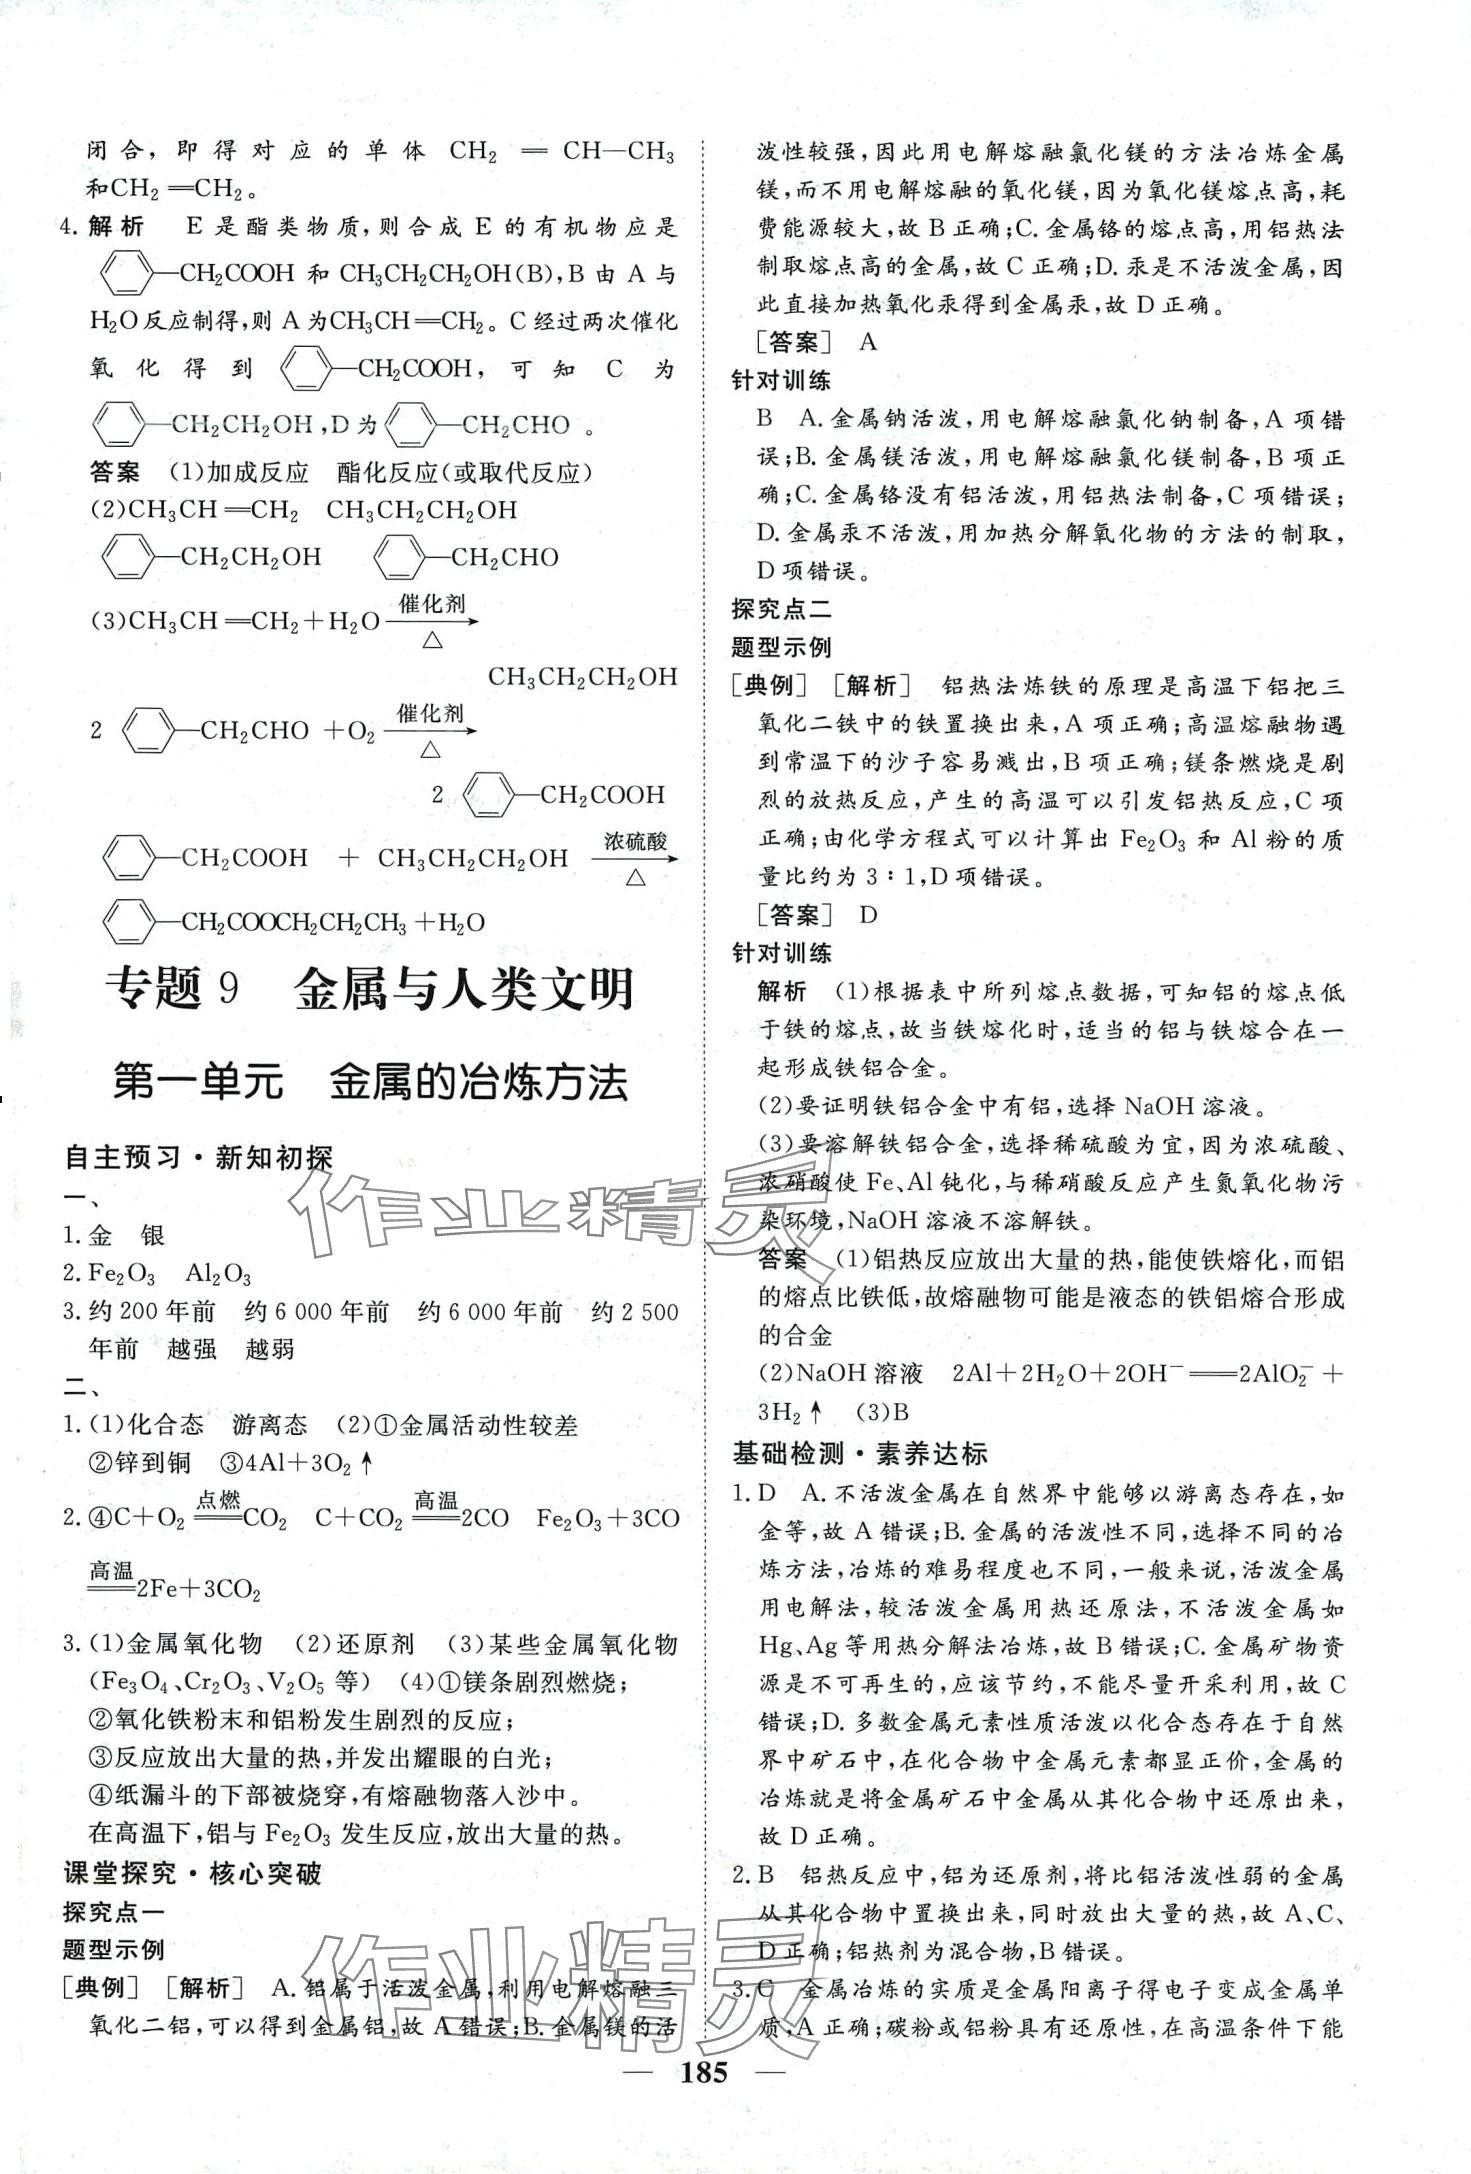 闭合，即得对应的单体 CH₂═CH—CH₃
和CH₂═CH₂。
4. 解析 E是酯类物质，则合成E的有机物应是
—CH₂COOH 和 CH₃CH₂CH₂OH(B)，B由A与
H₂O反应制得，则A为CH₃CH═CH₂。C经过两次催化
氧化得到 —CH₂COOH，可知C为
—CH₂CH₂OH，D为 —CH₂CHO。
答案 (1)加成反应 酯化反应(或取代反应)
(2)CH₃CH═CH₂ CH₃CH₂CH₂OH
—CH₂CH₂OH —CH₂CHO
(3)CH₃CH═CH₂+H₂O 催化剂 △ →
CH₃CH₂CH₂OH
2 —CH₂CHO +O₂ 催化剂 △ →
2 —CH₂COOH
—CH₂COOH + CH₃CH₂CH₂OH 浓硫酸 △ →
—CH₂COOCH₂CH₂CH₃+H₂O
专题9 金属与人类文明
第一单元 金属的冶炼方法
自主预习·新知初探
一、
1. 金 银
2. Fe₂O₃ Al₂O₃
3. 约200年前 约6 000年前 约6 000年前 约2 500
年前 越强 越弱
二、
1. (1)化合态 游离态 (2)①金属活动性较差
②锌到铜 ③4Al+3O₂↑
2. ④C+O₂ 点燃═ CO₂ C+CO₂ 高温═ 2CO Fe₂O₃+3CO
高温═ 2Fe+3CO₂
3. (1)金属氧化物 (2)还原剂 (3)某些金属氧化物
(Fe₃O₄、Cr₂O₃、V₂O₅等) (4)①镁条剧烈燃烧；
②氧化铁粉末和铝粉发生剧烈的反应；
③反应放出大量的热，并发出耀眼的白光；
④纸漏斗的下部被烧穿，有熔融物落入沙中。
在高温下，铝与Fe₂O₃发生反应，放出大量的热。
课堂探究·核心突破
探究点一
题型示例
[典例] [解析] A. 铝属于活泼金属，利用电解熔融三
氧化二铝，可以得到金属铝，故A错误；B. 金属镁的活
泼性较强，因此用电解熔融氯化镁的方法冶炼金属
镁，而不用电解熔融的氧化镁，因为氧化镁熔点高，耗
费能源较大，故B正确；C. 金属铬的熔点高，用铝热法
制取熔点高的金属，故C正确；D. 汞是不活泼金属，因
此直接加热氧化汞得到金属汞，故D正确。
[答案] A
针对训练
B A. 金属钠活泼，用电解熔融氯化钠制备，A项错
误；B. 金属镁活泼，用电解熔融氯化镁制备，B项正
确；C. 金属铬没有铝活泼，用铝热法制备，C项错误；
D. 金属汞不活泼，用加热分解氧化物的方法的制取，
D项错误。
探究点二
题型示例
[典例] [解析] 铝热法炼铁的原理是高温下铝把三
氧化二铁中的铁置换出来，A项正确；高温熔融物遇
到常温下的沙子容易溅出，B项正确；镁条燃烧是剧
烈的放热反应，产生的高温可以引发铝热反应，C项
正确；由化学方程式可以计算出Fe₂O₃和Al粉的质
量比约为3∶1，D项错误。
[答案] D
针对训练
解析 (1)根据表中所列熔点数据，可知铝的熔点低
于铁的熔点，故当铁熔化时，适当的铝与铁熔合在一
起形成铁铝合金。
(2)要证明铁铝合金中有铝，选择NaOH溶液。
(3)要溶解铁铝合金，选择稀硫酸为宜，因为浓硫酸、
浓硝酸使Fe、Al钝化，与稀硝酸反应产生氮氧化物污
染环境，NaOH溶液不溶解铁。
答案 (1)铝热反应放出大量的热，能使铁熔化，而铝
的熔点比铁低，故熔融物可能是液态的铁铝熔合形成
的合金
(2)NaOH溶液 2Al+2H₂O+2OH⁻═2AlO₂⁻+
3H₂↑ (3)B
基础检测·素养达标
1. D A. 不活泼金属在自然界中能够以游离态存在，如
金等，故A错误；B. 金属的活泼性不同，选择不同的冶
炼方法，冶炼的难易程度也不同，一般来说，活泼金属
用电解法，较活泼金属用热还原法，不活泼金属如
Hg、Ag等用热分解法冶炼，故B错误；C. 金属矿物资
源是不可再生的，应该节约，不能尽量开采利用，故C
错误；D. 多数金属元素性质活泼以化合态存在于自然
界中矿石中，在化合物中金属元素都显正价，金属的
冶炼就是将金属矿石中金属从其化合物中还原出来，
故D正确。
2. B 铝热反应中，铝为还原剂，将比铝活泼性弱的金属
从其化合物中置换出来，同时放出大量的热，故A、C、
D正确；铝热剂为混合物，B错误。
3. C 金属冶炼的实质是金属阳离子得电子变成金属单
质，A正确；碳粉或铝粉具有还原性，在高温条件下能
— 185 —
作业精灵
作业精灵